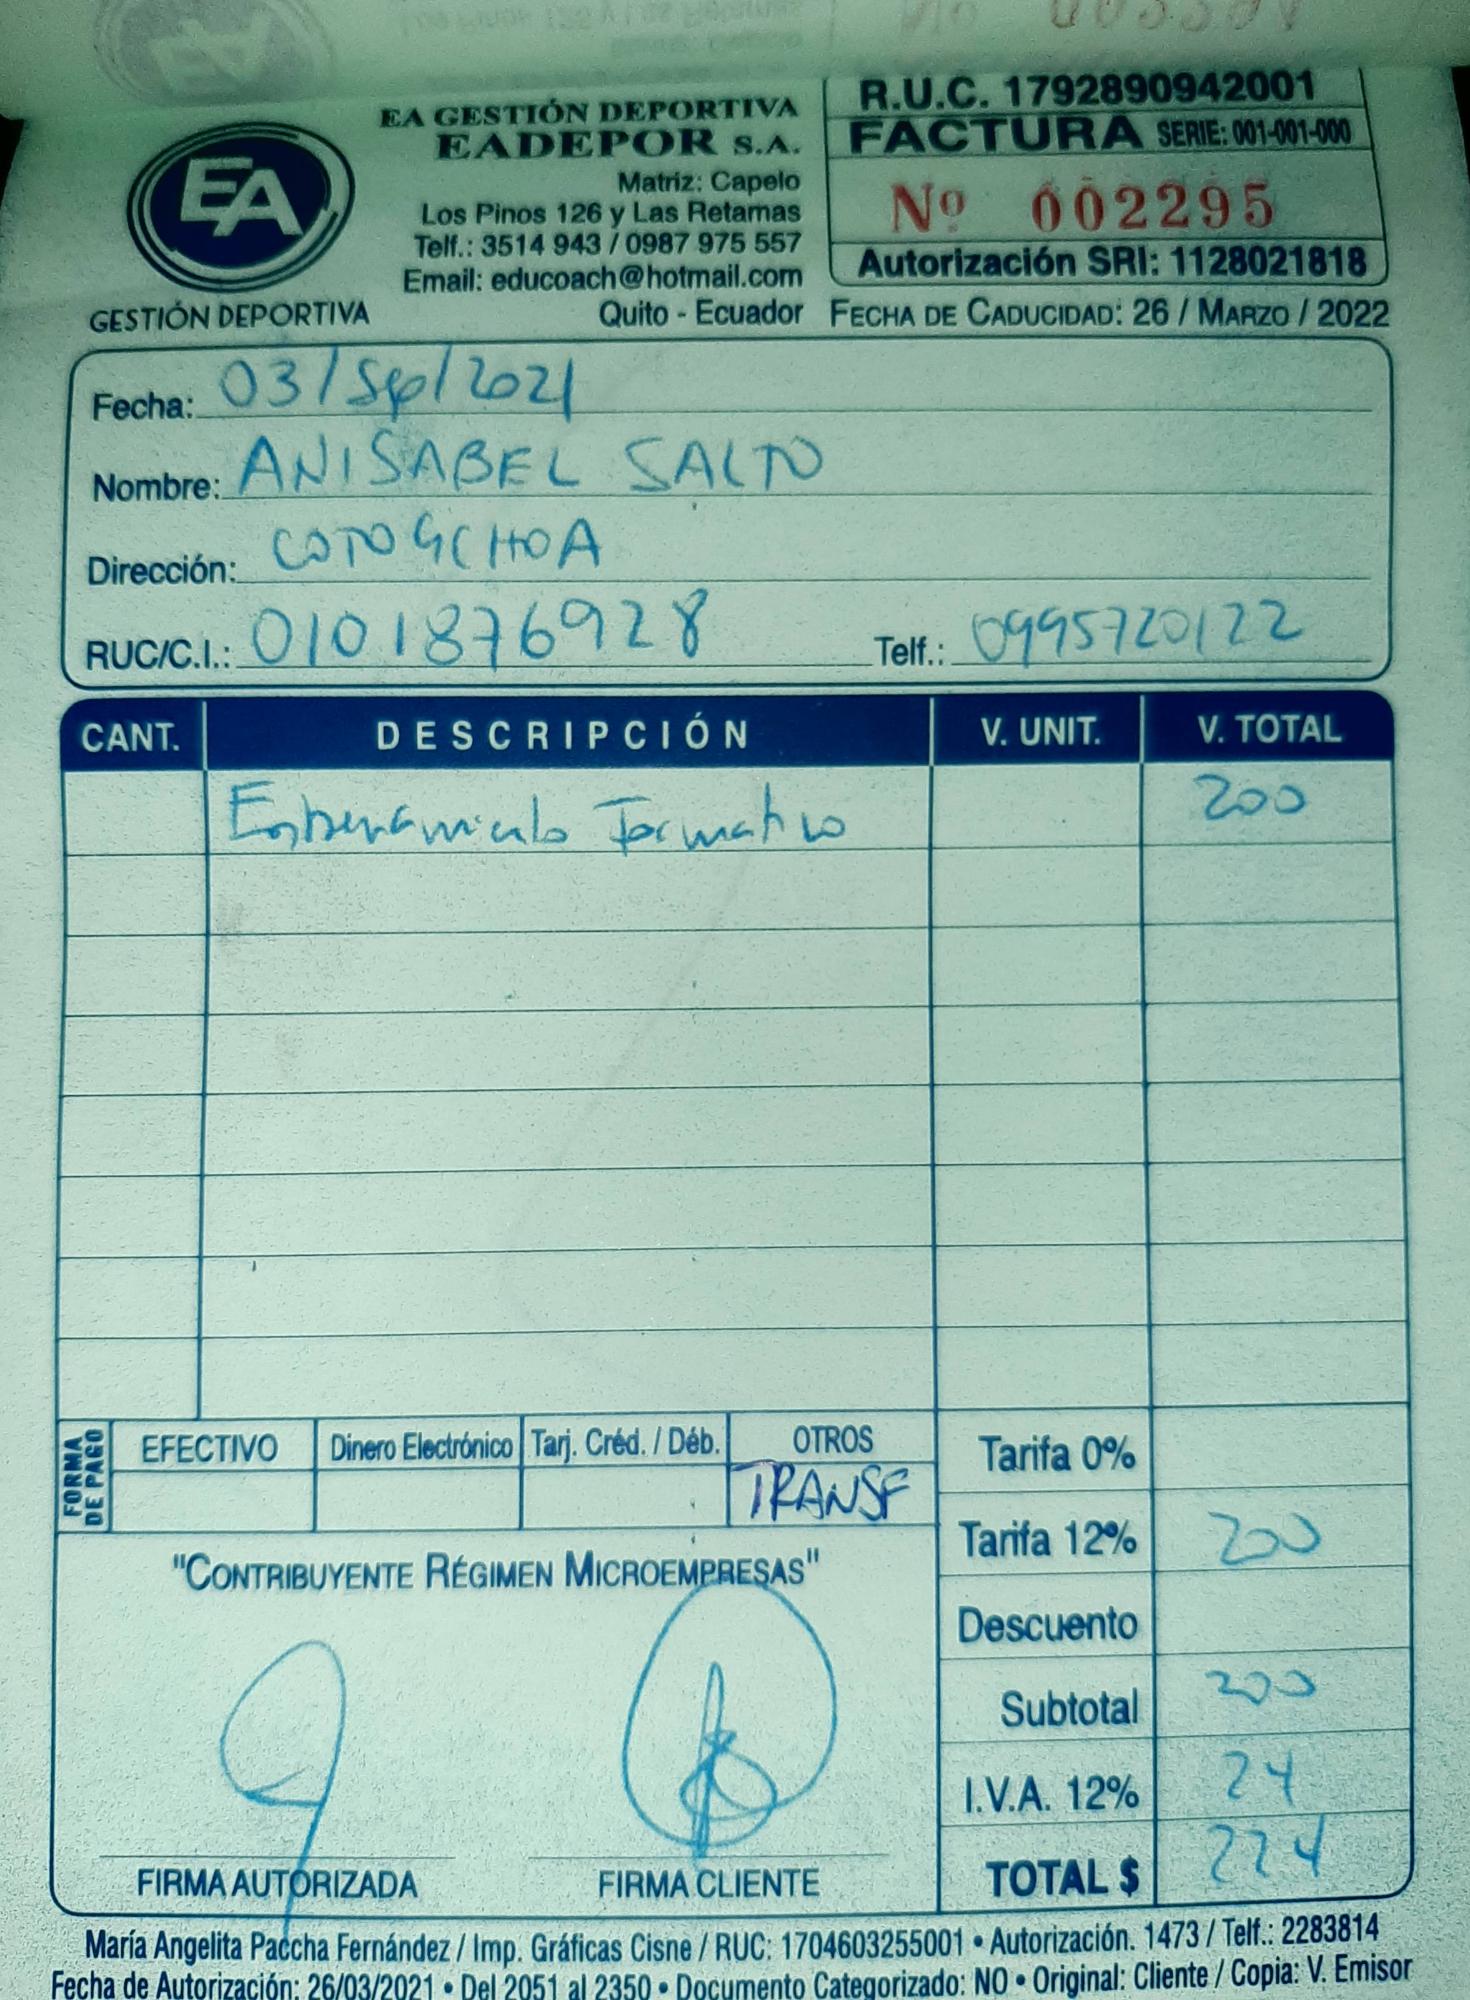 EA GESTIÓN DEPORTIVA
EADEPOR S.A.
Matriz: Capelo
Los Pinos 126 y Las Retamas
Telf.: 3514 943 / 0987 975 557
Email: educoach@hotmail.com
Quito - Ecuador
EA
GESTIÓN DEPORTIVA
R.U.C. 1792890942001
FACTURA SERIE: 001-001-000
Nº 002295
Autorización SRI: 1128021818
FECHA DE CADUCIDAD: 26 / MARZO / 2022
Fecha: 03/Sep/2021
Nombre: ANISABEL SALTO
Dirección: COTOGCHOA
RUC/C.I.: 0101876928 Telf.: 0995720122
CANT. DESCRIPCIÓN V. UNIT. V. TOTAL
Entrenamiento Formativo 200
FORMA DE PAGO
EFECTIVO Dinero Electrónico Tarj. Créd. / Déb. OTROS
TRANSF
Tarifa 0%
Tarifa 12% 200
Descuento
Subtotal 200
I.V.A. 12% 24
TOTAL $ 224
"CONTRIBUYENTE RÉGIMEN MICROEMPRESAS"
FIRMA AUTORIZADA FIRMA CLIENTE
María Angelita Paccha Fernández / Imp. Gráficas Cisne / RUC: 1704603255001 • Autorización. 1473 / Telf.: 2283814
Fecha de Autorización: 26/03/2021 • Del 2051 al 2350 • Documento Categorizado: NO • Original: Cliente / Copia: V. Emisor